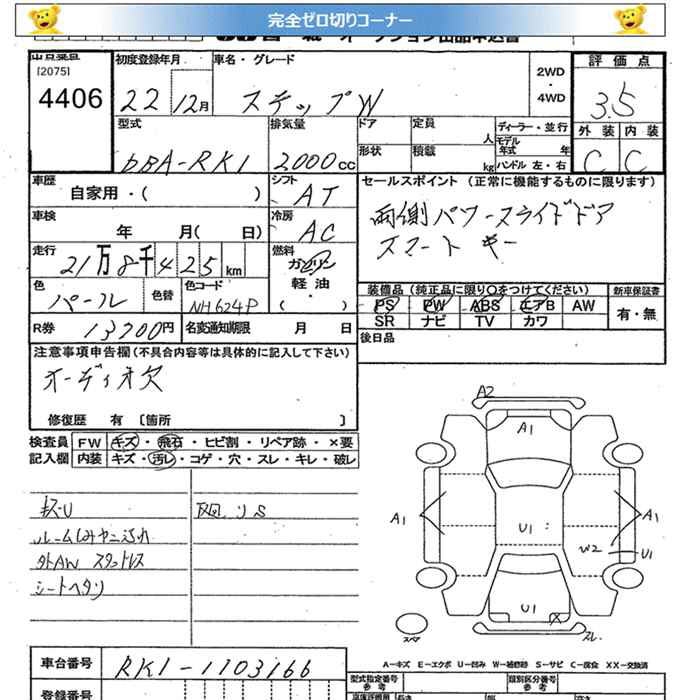 完全ゼロ切りコーナー
[2075]
4406
初度登録年月
22 12月
車名・グレード
ステップW
2WD
・
4WD
評価点
3.5
外装 内装
C C
型式
DBA-RK1
排気量
2000cc
ドア
定員
人
形状
積載
kg
ディーラー・並行
モデル年式 年
ハンドル 左・右
車歴
自家用・( )
シフト
AT
車検
年 月( 日)
冷房
AC
走行
21万8千425km
燃料
ガソリン
軽油
・( )
色
パール
色替
色コード
NH624P
R券
13700円
名変通知期限 月 日
セールスポイント (正常に機能するものに限ります)
両側パワースライドドア
スマートキー
装備品 (純正品に限り○をつけてください)
PS PW ABS エアB AW
SR ナビ TV カワ
新車保証書
有・無
後日品
注意事項申告欄(不具合内容等は具体的に記入して下さい)
オーディオ欠
修復歴 有 [箇所 ]
検査員
記入欄
FW キズ・飛石・ヒビ割・リペア跡・×要
内装 キズ・汚レ・コゲ・穴・スレ・キレ・破レ
キズU
ルームしみヤニ汚れ
外AW スタットレス
シートヘタリ
A2
A1
A1
A1
U1
W2
U1
U1
X
スレ
スペア
A-キズ E-エクボ U-凹み W-補修跡 S-サビ C-腐食 XX-交換済
車台番号
RK1-1103166
登録番号
型式指定番号
参考
類別区分番号
参考